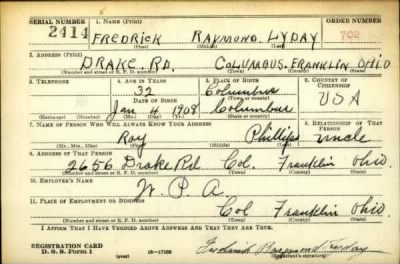 SERIAL NUMBER 1. NAME (Print) ORDER NUMBER
2414 FREDRICK RAYMOND LYDAY 702
(First) (Middle) (Last)
2. ADDRESS (Print)
DRAKE RD. COLUMBUS. FRANKLIN OHIO
(Number and street or R. F. D. number) (Town) (County) (State)
3. TELEPHONE 4. AGE IN YEARS 5. PLACE OF BIRTH 6. COUNTRY OF CITIZENSHIP
32 Columbus
DATE OF BIRTH (Town or county)
Jan 4 1908 Columbus USA
(Exchange) (Number) (Mo.) (Day) (Yr.) (State or country)
7. NAME OF PERSON WHO WILL ALWAYS KNOW YOUR ADDRESS 8. RELATIONSHIP OF THAT PERSON
Roy Phillips uncle
(Mr., Mrs., Miss) (First) (Middle) (Last)
9. ADDRESS OF THAT PERSON
2656 Drake Rd Col. Franklin Ohio.
(Number and street or R. F. D. number) (Town) (County) (State)
10. EMPLOYER'S NAME
W. P. A.
11. PLACE OF EMPLOYMENT OR BUSINESS
Col Franklin Ohio.
(Number and street or R. F. D. number) (Town) (County) (State)
I AFFIRM THAT I HAVE VERIFIED ABOVE ANSWERS AND THAT THEY ARE TRUE.
REGISTRATION CARD
D. S. S. Form 1 (over) Fredrick Raymond Lyday
(Registrant's signature)